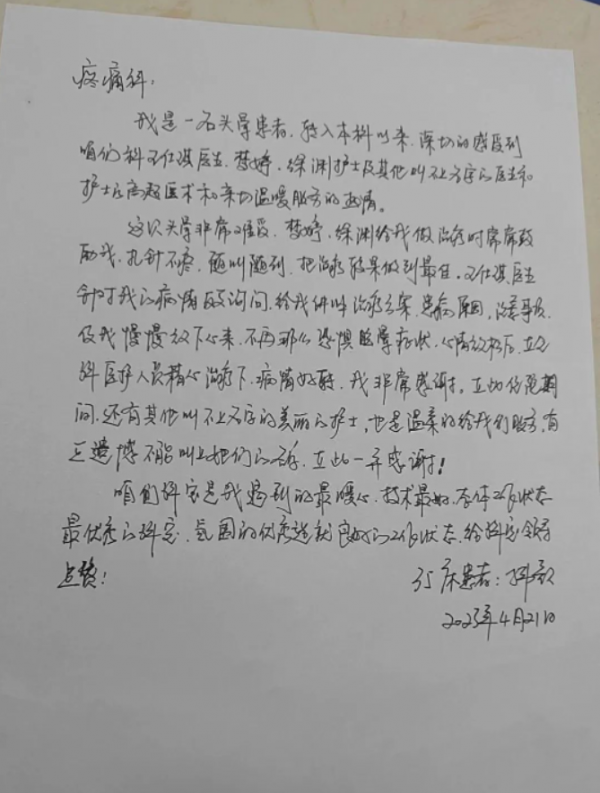 疼痛科:
我是一名头晕患者,转入本科以来,深切的感受到
咱们科 仕琪医生、梦婷、徐渊护士及其他叫不上名字的医生和
护士的高超医术和亲切温暖服务的热情。
这次头晕非常难受,梦婷、徐渊给我做治疗时常常鼓
励我,扎针不疼,随叫随到,把治疗效果做到最佳。 仕琪医生
针对我的病情反复询问,给我讲解治疗方案、患病原因、注意事项,
使我慢慢放下心来,不再那么恐惧眩晕症状,心情放松后,在
科医护人员精心治疗下,病情好转,我非常感谢。在此住院期
间,还有其他叫不上名字的美丽的护士,也是温柔的给我们服务,有
些遗憾不能叫上她们的名字,在此一并感谢!
咱们科室是我遇到的最暖心、技术最好、全体工作状态
最优秀的科室,氛围的优秀造就良好的工作状态,给科室领导
点赞!
35床患者:
2025年4月21日